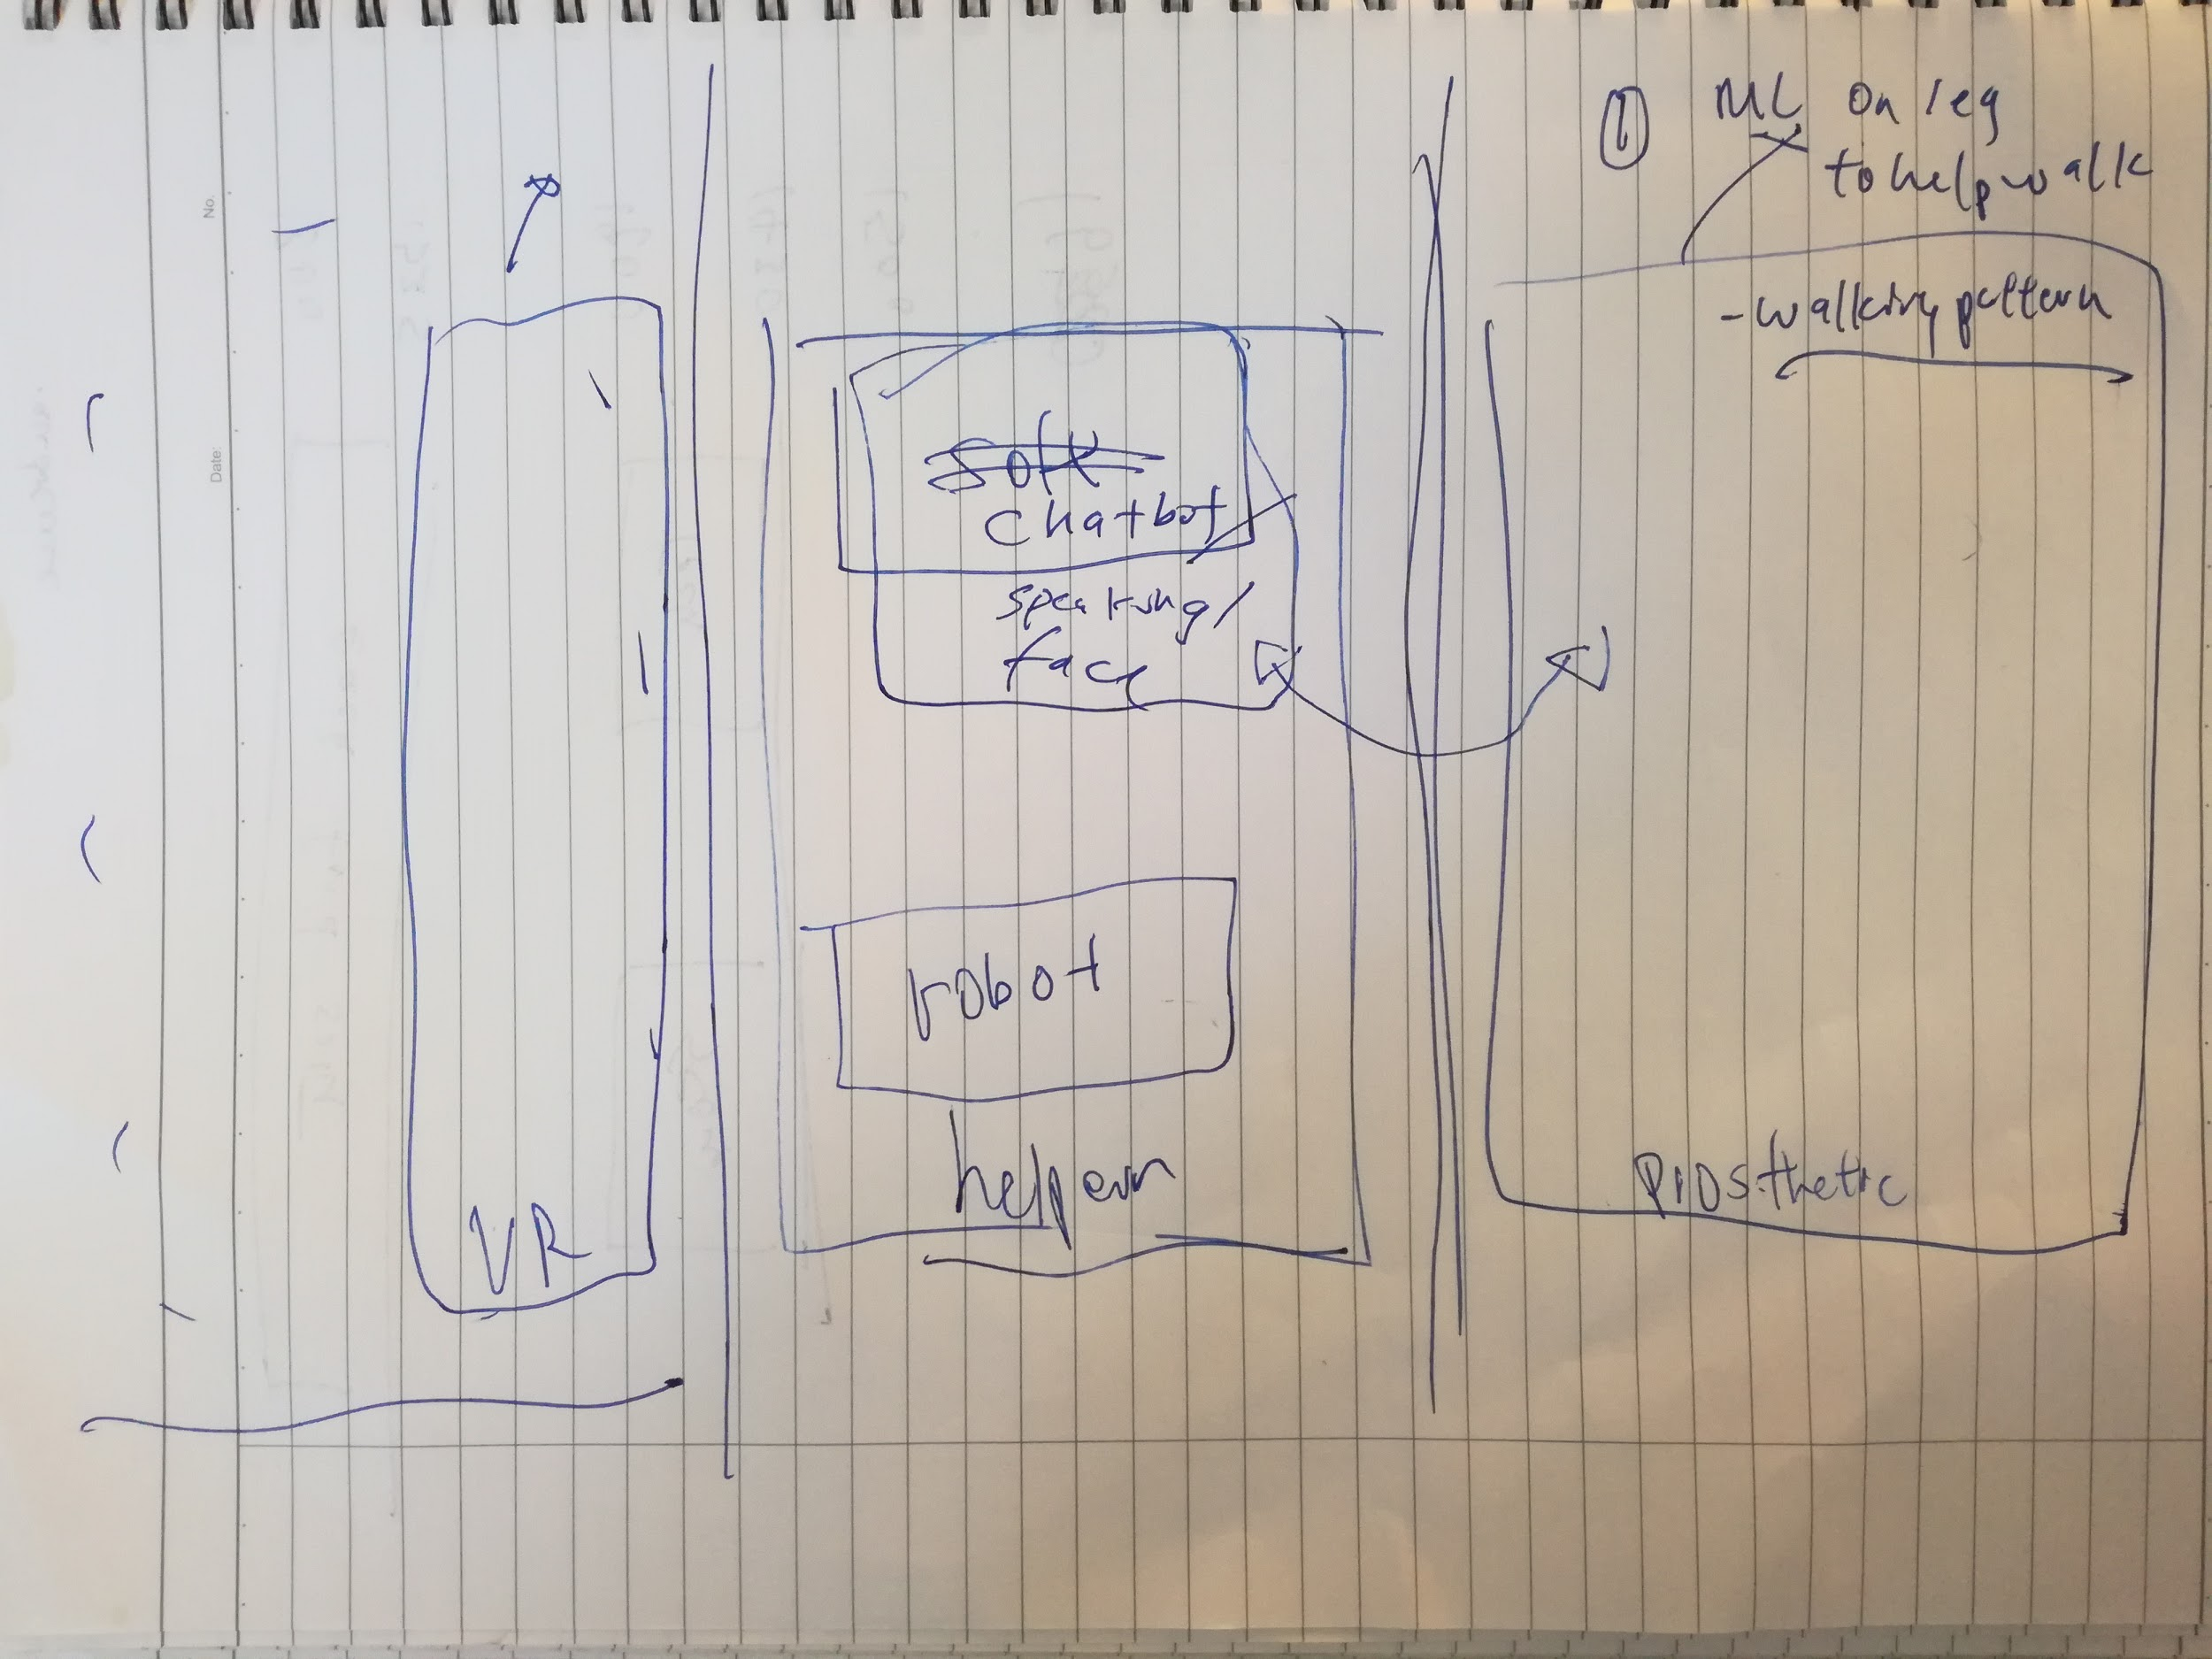 No.
Date:
VR
soft
chatbot
speaking/
face
robot
① ML on leg
to help walk
- walking pattern
Prosthetic